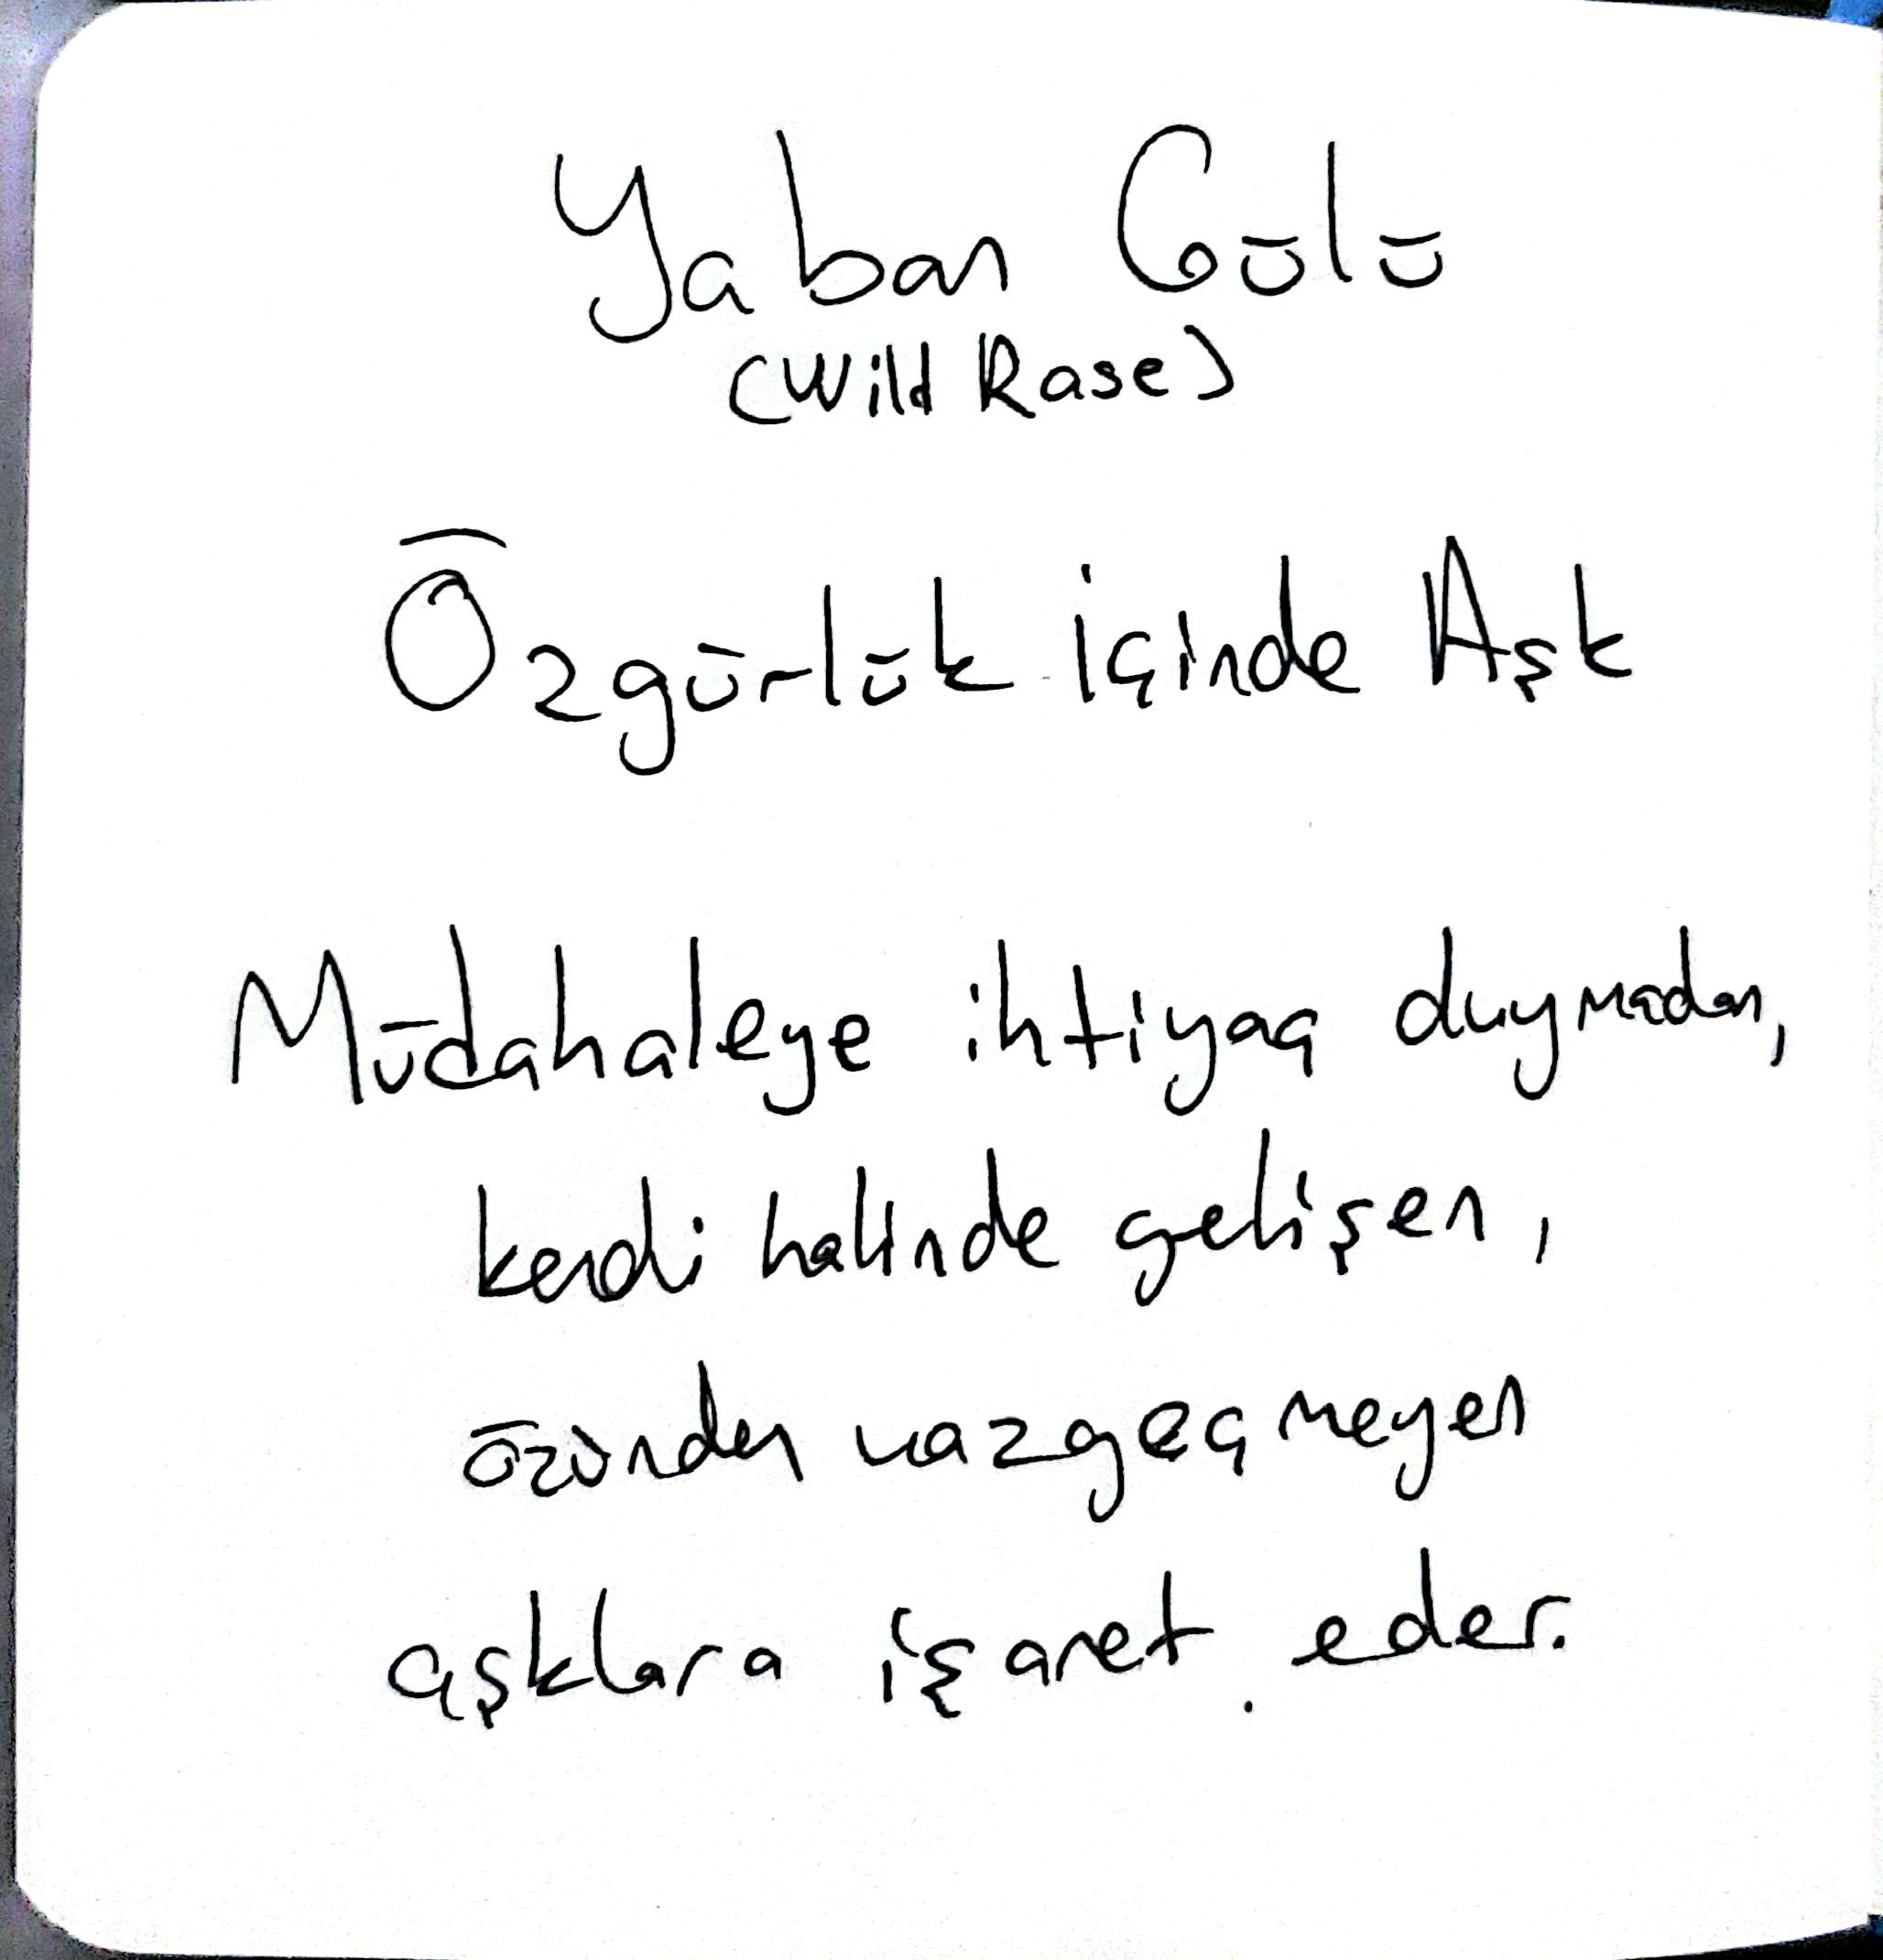 Yaban Gülü
(Wild Rose)
Özgürlük içinde Aşk
Müdahaleye ihtiyaç duymadan,
kendi halinde gelişen,
özünden vazgeçmeyen
aşklara işaret eder.